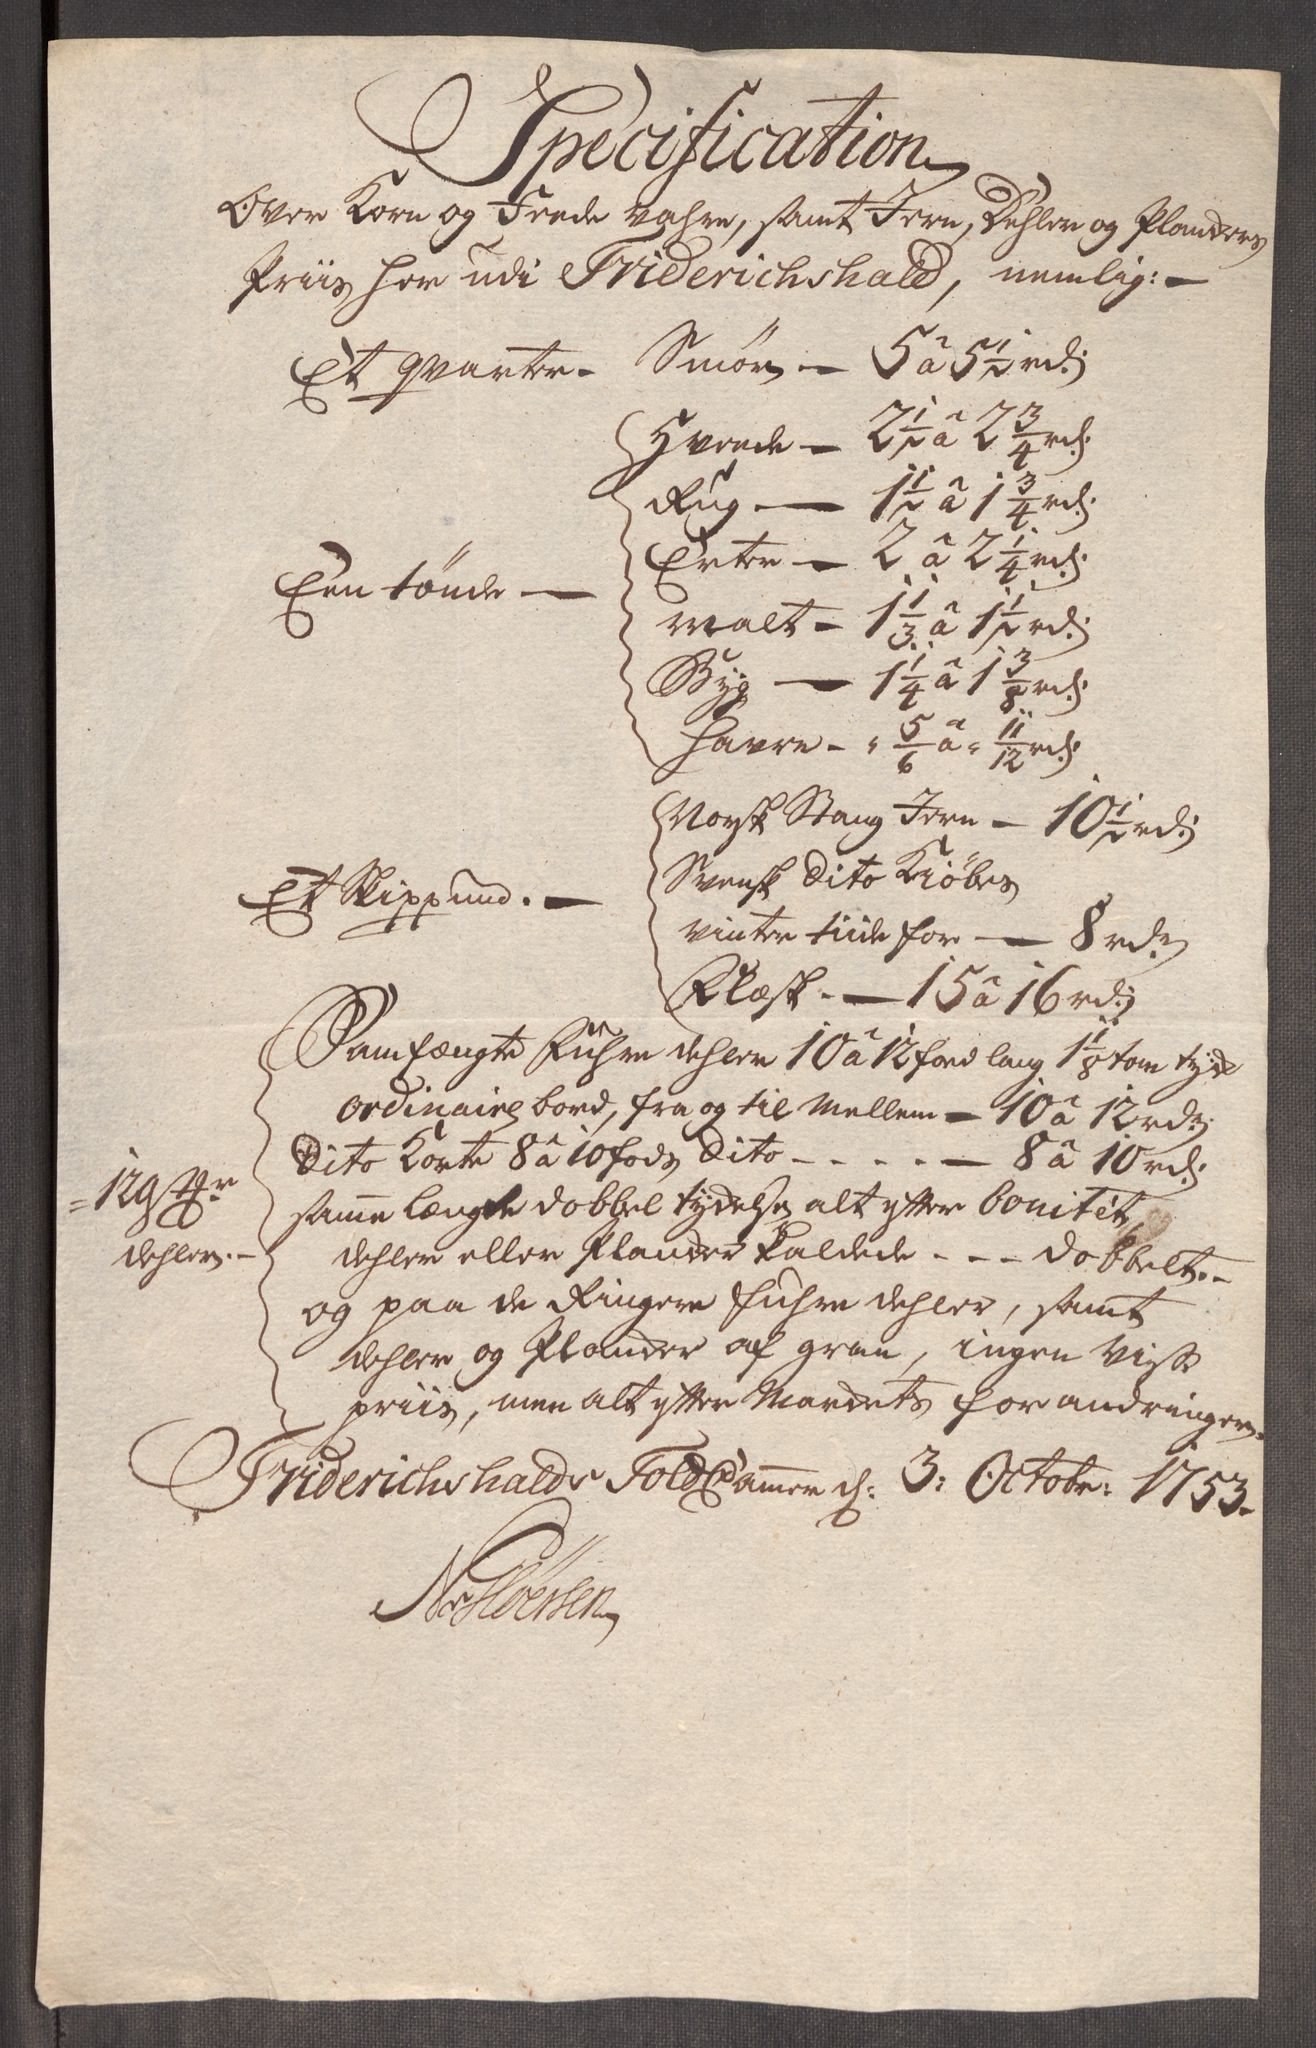 Specification
Over Korn og Feede vahre, samt Jern, Dehler og Plankers
Priis her udi Friderichshald, nemlig: —
Et qvarter – Smör — 5 â 5 1/2 rd:
Hvede — 2 1/2 â 2 3/4 rd:
Rug — 1 1/2 â 1 3/4 rd:
Erter — 2 â 2 1/4 rd:
Een tönde —
malt – 1 1/3 â 1 1/2 rd:
Byg — 1 1/4 â 1 3/8 rd:
Havre – " 5/6 â " 11/12 rd:
Norsk Stang Jern — 10 1/2 rd:
Svensk dito Kiöbes
Et Skippund. —
vinter tiide for — 8 rd:
Flæsk. — 15 â 16 rd:
Samfængte Fuhre dehler 10 â 12 foed lang 1 1/8 tom tyk
ordinaire bord, fra og til Mellem — 10 â 12 rd:
Dito Korte 8 â 10 fods dito - - - - — 8 â 10 rd:
dehler. –
samme længde dobbel tydelse, alt efter bonitét,
dehler eller Planker kaldede - - - dobbelt. –
og paa de Ringere fuhre dehler, samt
dehler og Planker af gran, ingen viss
priis, men alt efter Markets forandringer.
Friderichshalds Told Cammer d: 3: Octobr: 1753.